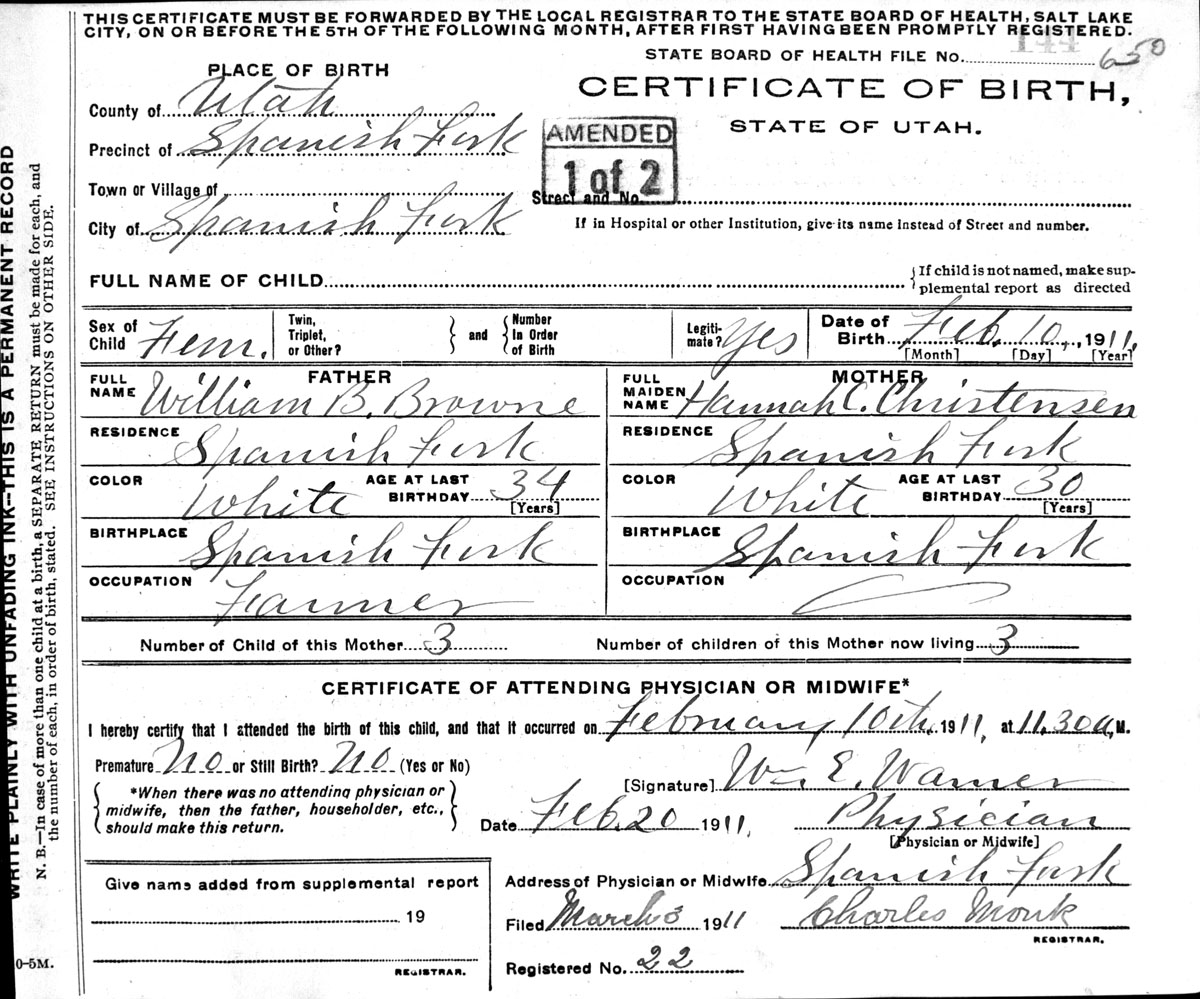 THIS CERTIFICATE MUST BE FORWARDED BY THE LOCAL REGISTRAR TO THE STATE BOARD OF HEALTH, SALT LAKE
CITY, ON OR BEFORE THE 5TH OF THE FOLLOWING MONTH, AFTER FIRST HAVING BEEN PROMPTLY REGISTERED.
144
STATE BOARD OF HEALTH FILE No. 650
PLACE OF BIRTH
CERTIFICATE OF BIRTH,
STATE OF UTAH.
County of Utah
Precinct of Spanish Fork
AMENDED
1 of 2
Town or Village of
Street and No.
City of Spanish Fork
If in Hospital or other Institution, give its name instead of Street and number.
FULL NAME OF CHILD
If child is not named, make sup-
plemental report as directed
Sex of Child Fem.
Twin, Triplet, or Other?
and
Number In Order of Birth
Legiti-mate? Yes
Date of Birth Feb. 10, 1911,
[Month] [Day] [Year]
FATHER
FULL NAME William B. Browne
MOTHER
FULL MAIDEN NAME Hannah C. Christensen
RESIDENCE Spanish Fork
RESIDENCE Spanish Fork
COLOR White AGE AT LAST BIRTHDAY 34 [Years]
COLOR White AGE AT LAST BIRTHDAY 30 [Years]
BIRTHPLACE Spanish Fork
BIRTHPLACE Spanish Fork
OCCUPATION Farmer
OCCUPATION
Number of Child of this Mother 3
Number of children of this Mother now living 3
CERTIFICATE OF ATTENDING PHYSICIAN OR MIDWIFE*
I hereby certify that I attended the birth of this child, and that it occurred on February 10th, 1911, at 11.30 a, M.
Premature No or Still Birth? No (Yes or No)
[Signature] Wm. E. Warner
*When there was no attending physician or
midwife, then the father, householder, etc.,
should make this return.
Date Feb. 20 1911, Physician
[Physician or Midwife]
Give name added from supplemental report
19
REGISTRAR.
Address of Physician or Midwife Spanish Fork
Filed March 3 1911 Charles Monk
REGISTRAR.
Registered No. 22
WRITE PLAINLY WITH UNFADING INK—THIS IS A PERMANENT RECORD
N. B.—In case of more than one child at a birth, a SEPARATE RETURN must be made for each, and
the number of each, in order of birth, stated. SEE INSTRUCTIONS ON OTHER SIDE.
0-5M.